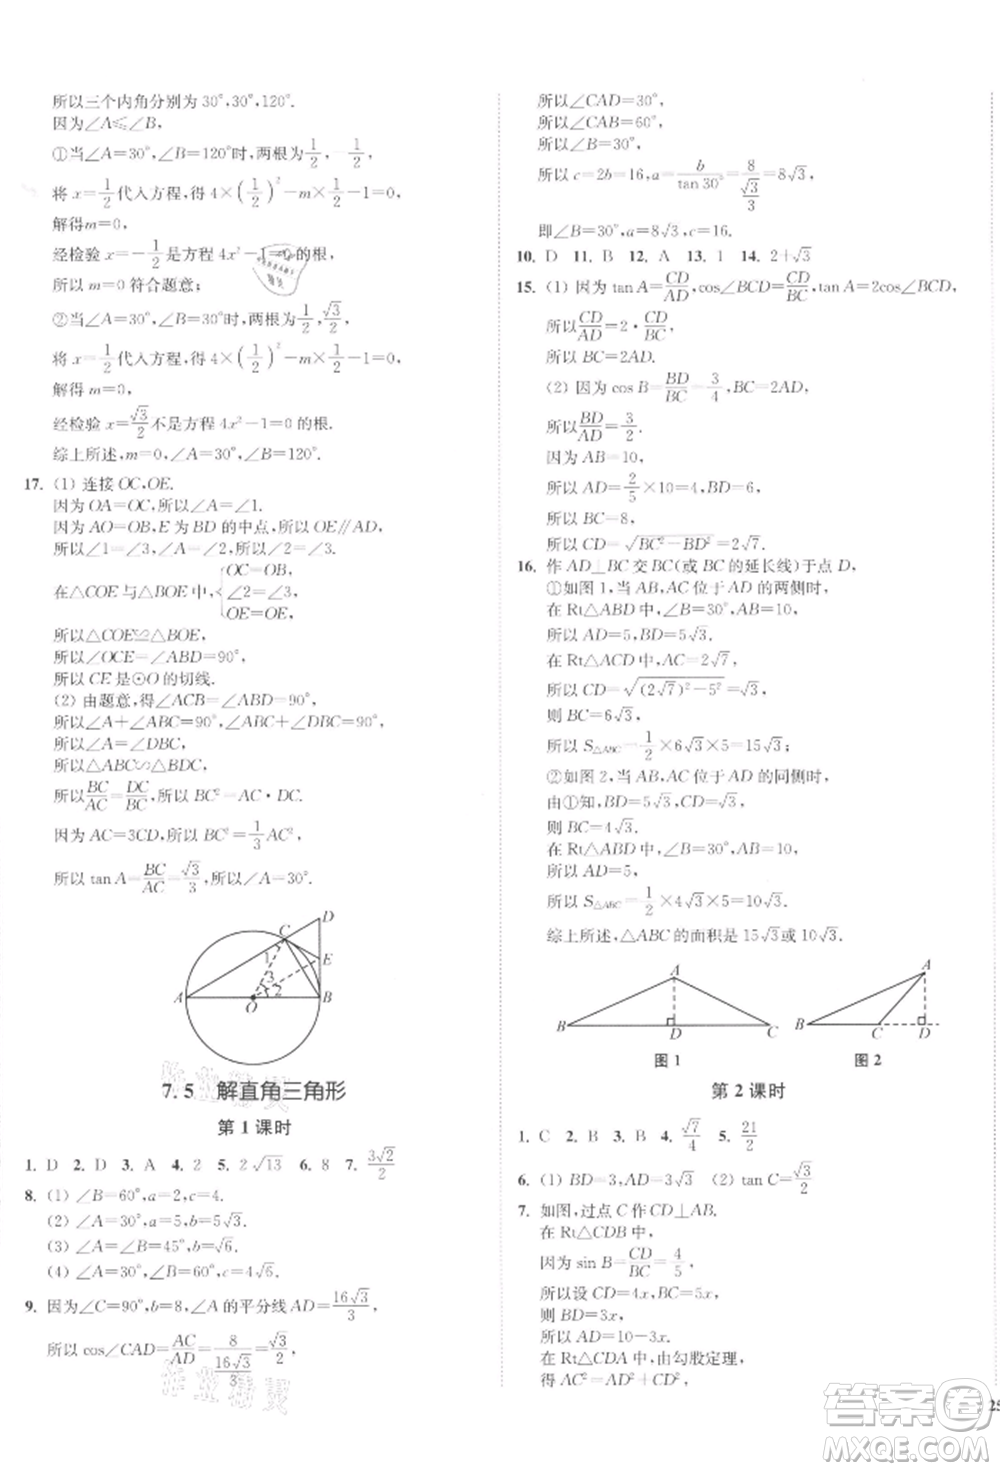 所以三个内角分别为30°,30°,120°.
因为∠A≤∠B,
①当∠A=30°,∠B=120°时,两根为1/2,-1/2,
将 x=1/2代入方程,得 4×(1/2)²-m×1/2-1=0,
解得m=0,
经检验 x=-1/2是方程 4x²-1=0的根,
所以 m=0 符合题意;
②当∠A=30°,∠B=30°时,两根为1/2,√3/2,
将 x=1/2代入方程,得 4×(1/2)²-m×1/2-1=0,
解得 m=0,
经检验 x=√3/2不是方程 4x²-1=0的根.
综上所述,m=0,∠A=30°,∠B=120°.
17. (1) 连接 OC,OE.
因为 OA=OC,所以∠A=∠1.
因为 AO=OB,E 为 BD 的中点,所以 OE∥AD,
所以∠1=∠3,∠A=∠2,所以∠2=∠3.
在△COE与△BOE中,{OC=OB, ∠2=∠3, OE=OE,
所以△COE≌△BOE,
所以∠OCE=∠ABD=90°,
所以 CE 是⊙O 的切线.
(2) 由题意,得∠ACB=∠BCD=90°,
所以∠A+∠ABC=90°,∠ABC+∠DBC=90°,
所以∠A=∠DBC,
所以△ABC∽△BDC,
所以BC/AC=DC/BC,所以 BC²=AC·CD.
因为 AC=3CD,所以 BC²=1/3AC²,
所以 tan A=BC/AC=√3/3,所以∠A=30°.
D
C
1
E
3
2
A
O
B
7.5 解直角三角形
第 1 课时
1. D 2. D 3. A 4. 2 5. 2√13 6. 8 7. 3√2/2
8. (1) ∠B=60°,a=2,c=4.
(2) ∠A=30°,a=5,b=5√3.
(3) ∠A=∠B=45°,b=√6.
(4) ∠A=30°,∠B=60°,c=4√6.
9. 因为∠C=90°,b=8,∠A 的平分线 AD=16√3/3,
所以 cos∠CAD=AC/AD=8/(16√3/3)=√3/2,
所以∠CAD=30°,
所以∠CAB=60°,
所以∠B=30°,
所以 c=2b=16,a=b/tan 30°=8/(√3/3)=8√3,
即∠B=30°,a=8√3,c=16.
10. D 11. B 12. A 13. 1 14. 2+√3
15. (1) 因为 tan A=CD/AD,cos∠BCD=CD/BC,tan A=2cos∠BCD,
所以CD/AD=2·CD/BC,
所以 BC=2AD.
(2) 因为 cos B=BD/BC=3/4,BC=2AD,
所以BD/AD=3/2.
因为 AB=10,
所以 AD=2/5×10=4,BD=6,
所以 BC=8,
所以 CD=√(BC²-BD²)=2√7.
16. 作 AD⊥BC 交 BC(或 BC 的延长线)于点 D,
①如图 1,当 AB,AC 位于 AD 的两侧时,
在 Rt△ABD 中,∠B=30°,AB=10,
所以 AD=5,BD=5√3.
在 Rt△ACD 中,AC=2√7,
所以 CD=√((2√7)²-5²)=√3,
则 BC=6√3,
所以 S△ABC=1/2×6√3×5=15√3;
②如图 2,当 AB,AC 位于 AD 的同侧时,
由①知,BD=5√3,CD=√3,
则 BC=4√3.
在 Rt△ABD 中,∠B=30°,AB=10,
所以 AD=5,
所以 S△ABC=1/2×4√3×5=10√3.
综上所述,△ABC 的面积是 15√3或 10√3.
A
B
D
C
图 1
A
B
C
D
图 2
第 2 课时
1. C 2. B 3. B 4. √7/4 5. 21/2
6. (1) BD=3,AD=3√3 (2) tan C=√3/2
7. 如图,过点 C 作 CD⊥AB.
在 Rt△CDB 中,
因为 sin B=CD/BC=4/5,
所以设 CD=4x,BC=5x,
则 BD=3x,
所以 AD=10-3x.
在 Rt△CDA 中,由勾股定理,
得 AC²=AD²+CD²,
25
答案圈
MXQE.COM